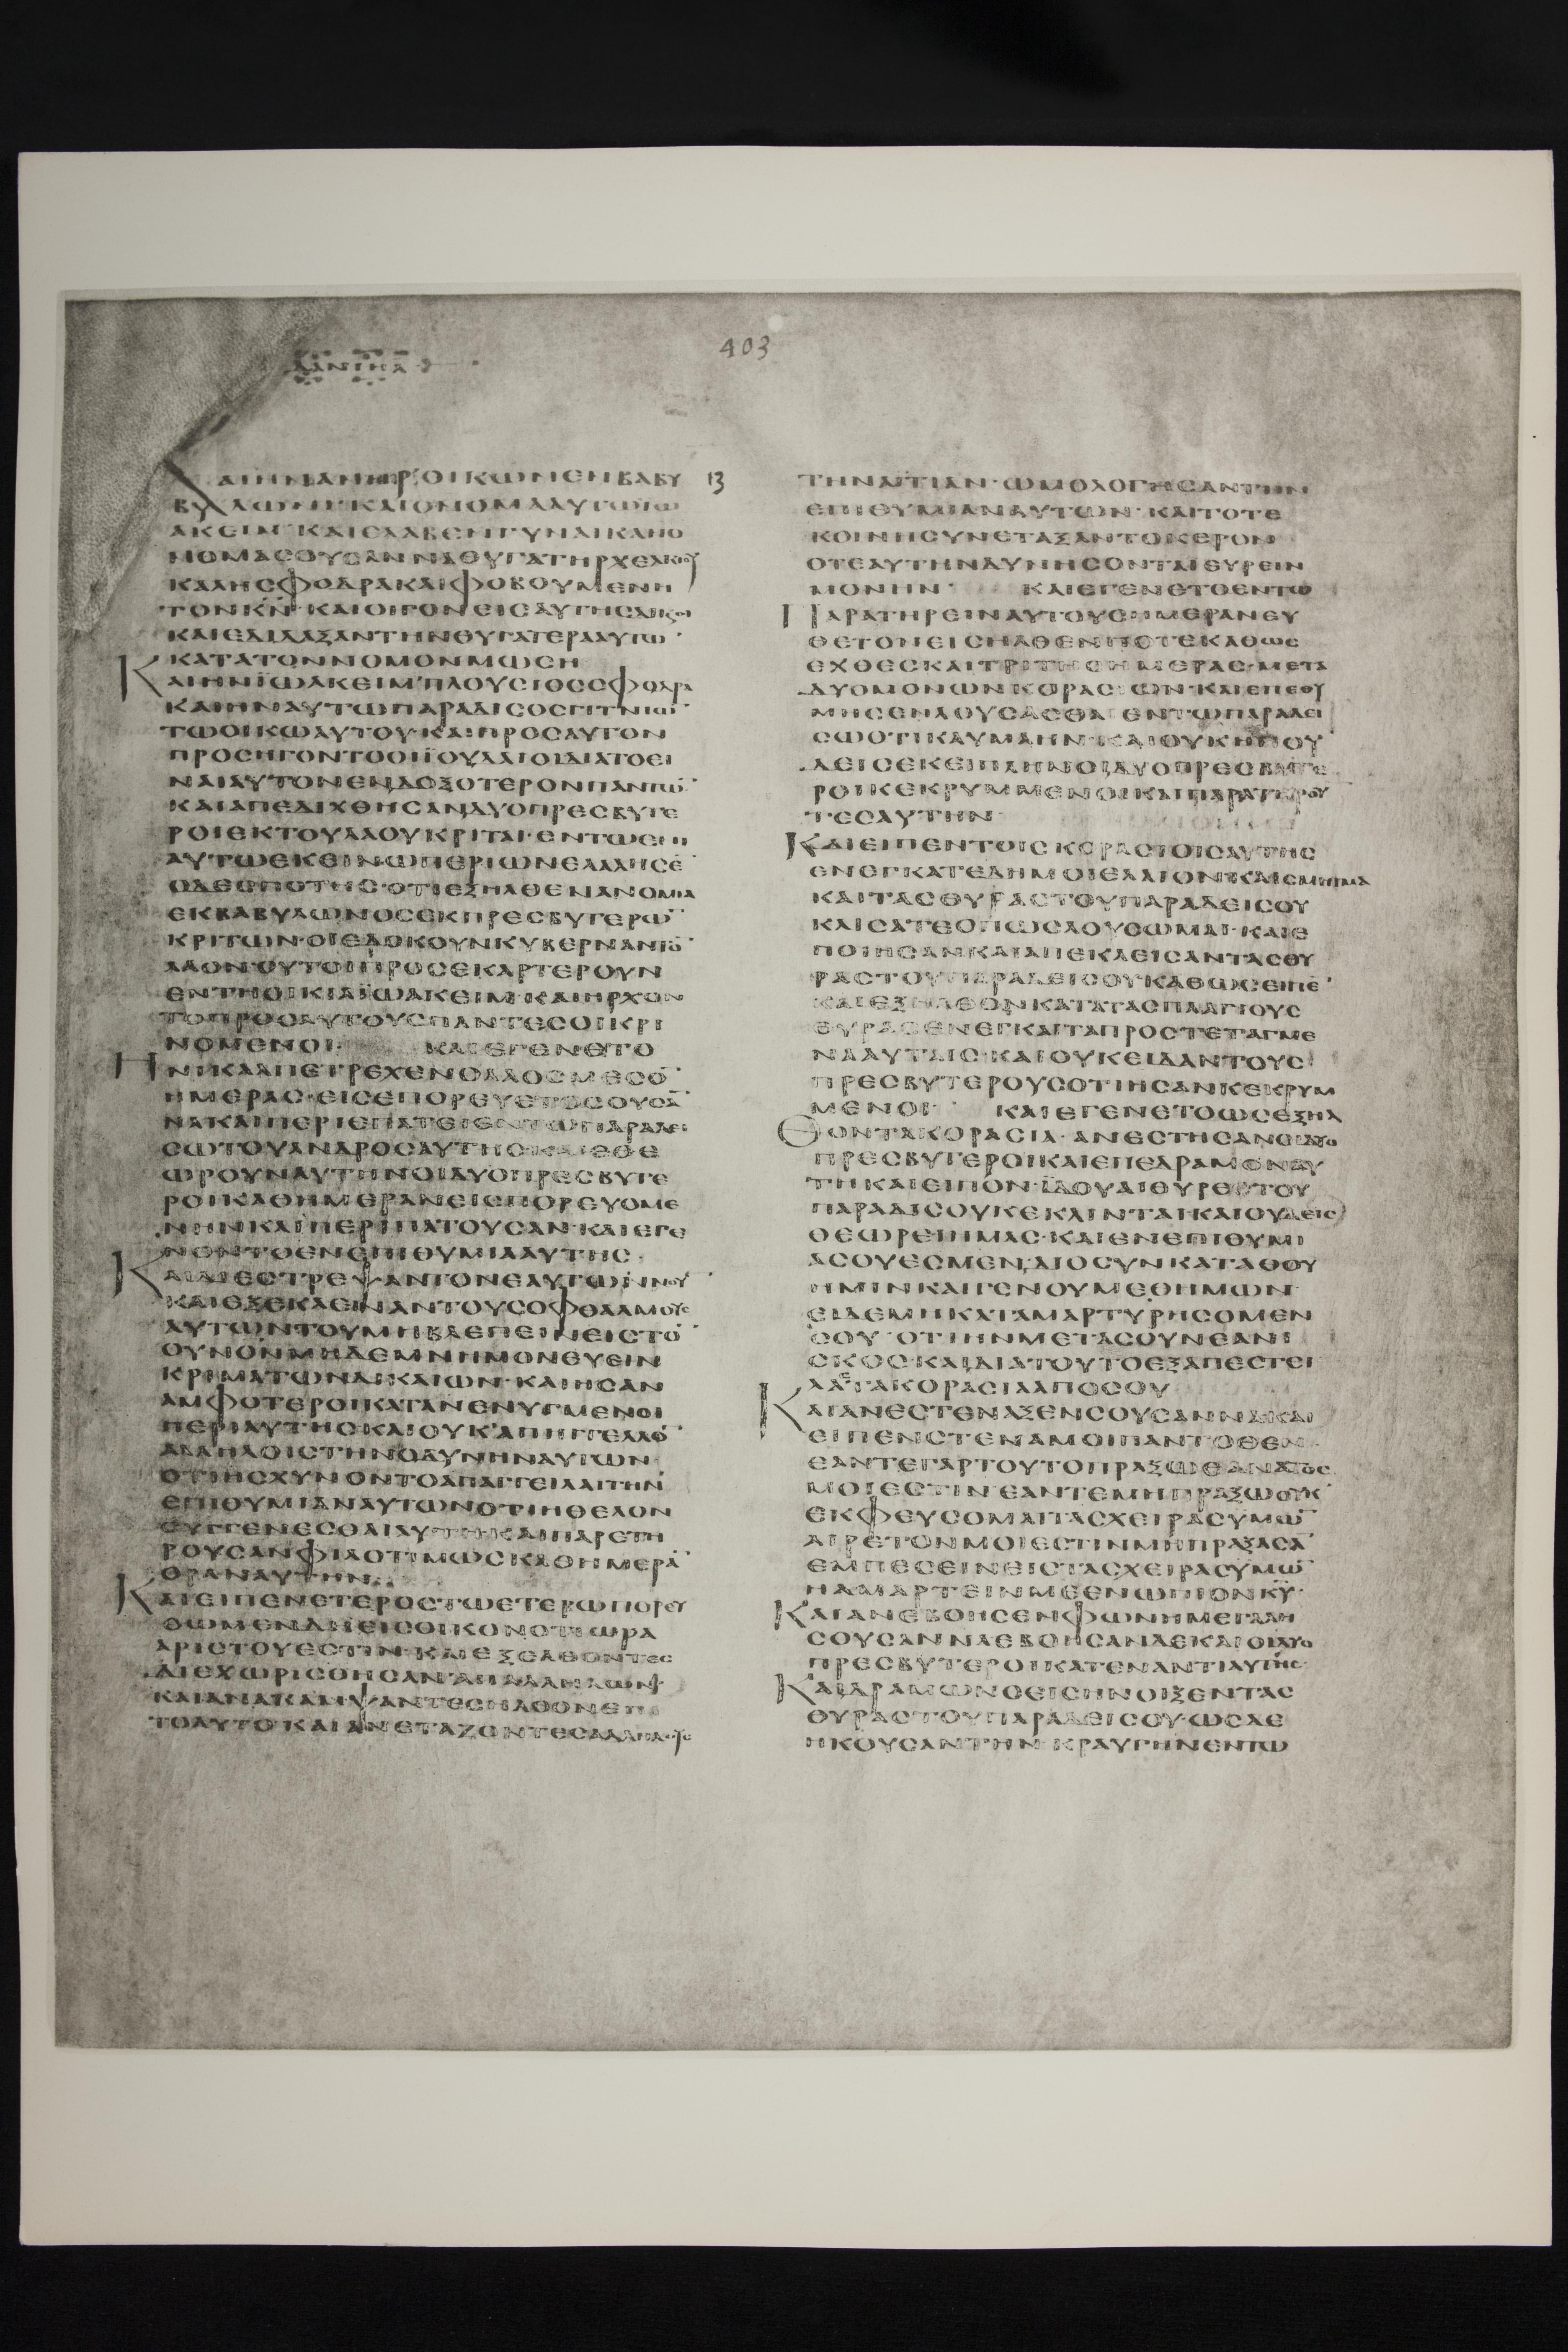 403
ΔΑΝΙΗΛ
ΚΑΙΗΝΑΝΗΡ ΟΙΚΩΝΕΝΒΑΒΥ 13
ΒΥΛΩΝΙ ΚΑΙΟΝΟΜΑΑΥΤΩΙΩ
ΑΚΕΙΜ ΚΑΙΕΛΑΒΕΝΓΥΝΑΙΚΑΗΟ
ΝΟΜΑΣΟΥΣΑΝΝΑΘΥΓΑΤΗΡΧΕΛΚΙΟΥ
ΚΑΛΗΣΦΟΔΡΑΚΑΙΦΟΒΟΥΜΕΝΗ
ΤΟΝΚΝ ΚΑΙΟΙΓΟΝΕΙΣΑΥΤΗΣΔΙΚΑΙΟΙ
ΚΑΙΕΔΙΔΑΞΑΝΤΗΝΘΥΓΑΤΕΡΑΑΥΤΩ
ΚΑΤΑΤΟΝΝΟΜΟΝΜΩΣΗ
ΚΑΙΗΝΪΩΑΚΕΙΜΠΛΟΥΣΙΟΣΣΦΟΔΡΑ
ΚΑΙΗΝΑΥΤΩΠΑΡΑΔΙΣΟΣΓΙΤΝΙΩ
ΤΩΟΙΚΩΑΥΤΟΥ ΚΑΙΠΡΟΣΑΥΤΟΝ
ΠΡΟΣΗΓΟΝΤΟΟΙΪΟΥΔΑΙΟΙΔΙΑΤΟΕΙ
ΝΑΙΑΥΤΟΝΕΝΔΟΞΟΤΕΡΟΝΠΑΝΤΩ
ΚΑΙΑΠΕΔΙΧΘΗΣΑΝΔΥΟΠΡΕΣΒΥΤΕ
ΡΟΙΕΚΤΟΥΛΑΟΥΚΡΙΤΑΙ ΕΝΤΩΕΝΙ
ΑΥΤΩΕΚΕΙΝΩΠΕΡΙΩΝΕΛΑΛΗΣΕ
ΟΔΕΣΠΟΤΗΣ ΟΤΙΕΞΗΛΘΕΝΑΝΟΜΙΑ
ΕΚΒΑΒΥΛΩΝΟΣΕΚΠΡΕΣΒΥΤΕΡΩ
ΚΡΙΤΩΝ ΟΙΕΔΟΚΟΥΝΚΥΒΕΡΝΑΝΤΟ
ΛΑΟΝ ΟΥΤΟΙΠΡΟΣΕΚΑΡΤΕΡΟΥΝ
ΕΝΤΗΟΙΚΙΑΪΩΑΚΕΙΜ ΚΑΙΗΡΧΟΝ
ΤΟΠΡΟΣΑΥΤΟΥΣΠΑΝΤΕΣΟΙΚΡΙ
ΝΟΜΕΝΟΙ ΚΑΙΕΓΕΝΕΤΟ
ΗΝΙΚΑΑΠΕΤΡΕΧΕΝΟΛΑΟΣΜΕΣΟ
ΗΜΕΡΑΣ ΕΙΣΕΠΟΡΕΥΕΤΟΣΟΥΣΑ
ΝΑΚΑΙΠΕΡΙΕΠΑΤΕΙΕΝΤΩΠΑΡΑΔΕΙ
ΣΩΤΟΥΑΝΔΡΟΣΑΥΤΗΣΚΑΙΕΘΕ
ΩΡΟΥΝΑΥΤΗΝΟΙΔΥΟΠΡΕΣΒΥΤΕ
ΡΟΙΚΑΘΗΜΕΡΑΝΕΙΣΠΟΡΕΥΟΜΕ
ΝΗΝΚΑΙΠΕΡΙΠΑΤΟΥΣΑΝ ΚΑΙΕΓΕ
ΝΟΝΤΟΕΝΕΠΙΘΥΜΙΑΑΥΤΗΣ
ΚΑΙΔΙΕΣΤΡΕΨΑΝΤΟΝΕΑΥΤΩΝΝΟΥ
ΚΑΙΕΞΕΚΛΕΙΝΑΝΤΟΥΣΟΦΘΑΛΜΟΥΣ
ΑΥΤΩΝΤΟΥΜΗΒΛΕΠΕΙΝΕΙΣΤΟ
ΟΥΝΟΝΜΗΔΕΜΝΗΜΟΝΕΥΕΙΝ
ΚΡΙΜΑΤΩΝΔΙΚΑΙΩΝ ΚΑΙΗΣΑΝ
ΑΜΦΟΤΕΡΟΙΚΑΤΑΝΕΝΥΓΜΕΝΟΙ
ΠΕΡΙΑΥΤΗΣΚΑΙΟΥΚΑΠΗΓΓΕΙΛΑ
ΑΛΛΗΛΟΙΣΤΗΝΟΔΥΝΗΝΑΥΤΩΝ
ΟΤΙΗΣΧΥΝΟΝΤΟΑΠΑΓΓΕΙΛΑΙΤΗΝ
ΕΠΙΘΥΜΙΑΝΑΥΤΩΝΟΤΙΗΘΕΛΟΝ
ΣΥΓΓΕΝΕΣΘΑΙΑΥΤΗΚΑΙΠΑΡΕΤΗ
ΡΟΥΣΑΝΦΙΛΟΤΙΜΩΣΚΑΘΗΜΕΡΑ
ΟΡΑΝΑΥΤΗΝ
ΚΑΙΕΙΠΕΝΕΤΕΡΟΣΤΩΕΤΕΡΩΠΟΡΕΥ
ΘΩΜΕΝΔΗΕΙΣΟΙΚΟΝΟΤΙΩΡΑ
ΑΡΙΣΤΟΥΕΣΤΙΝ ΚΑΙΕΞΕΛΘΟΝΤΕΣ
ΔΙΕΧΩΡΙΣΘΗΣΑΝΑΠΑΛΛΗΛΩΝ
ΚΑΙΑΝΑΚΑΜΨΑΝΤΕΣΗΛΘΟΝΕΠΙ
ΤΟΑΥΤΟ ΚΑΙΑΝΕΤΑΖΟΝΤΕΣΑΛΛΗΛΟΥΣ
ΤΗΝΑΙΤΙΑΝ ΩΜΟΛΟΓΗΣΑΝΤΗΝ
ΕΠΙΘΥΜΙΑΝΑΥΤΩΝ ΚΑΙΤΟΤΕ
ΚΟΙΝΗΣΥΝΕΤΑΞΑΝΤΟΚΕΡΟΝ
ΟΤΕΑΥΤΗΝΔΥΝΗΣΟΝΤΑΙΕΥΡΕΙΝ
ΜΟΝΗΝ ΚΑΙΕΓΕΝΕΤΟΕΝΤΩ
ΠΑΡΑΤΗΡΕΙΝΑΥΤΟΥΣΗΜΕΡΑΝΕΥ
ΘΕΤΟΝΕΙΣΗΛΘΕΝΠΟΤΕΚΑΘΩΣ
ΕΧΘΕΣΚΑΙΤΡΙΤΗΣΗΜΕΡΑΣ ΜΕΤΑ
ΔΥΟΜΟΝΩΝΚΟΡΑΣΙΩΝ ΚΑΙΕΠΕΘΥ
ΜΗΣΕΝΛΟΥΣΑΣΘΑΙΕΝΤΩΠΑΡΑΔΕΙ
ΣΩΟΤΙΚΑΥΜΑΗΝ ΚΑΙΟΥΚΗΝΟΥ
ΔΕΙΣΕΚΕΙΠΛΗΝΟΙΔΥΟΠΡΕΣΒΥΤΕ
ΡΟΙΚΕΚΡΥΜΜΕΝΟΙΚΑΙΠΑΡΑΤΗΡΟΥ
ΤΕΣΑΥΤΗΝ
ΚΑΙΕΙΠΕΝΤΟΙΣΚΟΡΑΣΙΟΙΣΑΥΤΗΣ
ΕΝΕΓΚΑΤΕΔΗΜΟΙΕΛΑΙΟΝΚΑΙΣΜΗΓΜΑ
ΚΑΙΤΑΣΘΥΡΑΣΤΟΥΠΑΡΑΔΕΙΣΟΥ
ΚΛΙΣΑΤΕΟΠΩΣΛΟΥΣΩΜΑΙ ΚΑΙΕ
ΠΟΙΗΣΑΝΚΑΙΑΠΕΚΛΕΙΣΑΝΤΑΣΘΥ
ΡΑΣΤΟΥΠΑΡΑΔΕΙΣΟΥΚΑΘΩΣΕΙΠΕ
ΚΑΙΕΞΗΛΘΟΝΚΑΤΑΤΑΣΠΛΑΓΙΟΥΣ
ΘΥΡΑΣΕΝΕΓΚΑΙΤΑΠΡΟΣΤΕΤΑΓΜΕ
ΝΑΑΥΤΑΙΣ ΚΑΙΟΥΚΕΙΔΑΝΤΟΥΣ
ΠΡΕΣΒΥΤΕΡΟΥΣΟΤΙΗΣΑΝΚΕΚΡΥΜ
ΜΕΝΟΙ ΚΑΙΕΓΕΝΕΤΟΩΣΕΞΗΛ
ΘΟΝΤΑΚΟΡΑΣΙΑ ΑΝΕΣΤΗΣΑΝΟΙΔΥΟ
ΠΡΕΣΒΥΤΕΡΟΙΚΑΙΕΠΕΔΡΑΜΟΝΑΥ
ΤΗΚΑΙΕΙΠΟΝ ΪΔΟΥΑΙΘΥΡΕΤΟΥ
ΠΑΡΑΔΙΣΟΥΚΕΚΛΙΝΤΑΙ ΚΑΙΟΥΔΕΙΣ
ΘΕΩΡΕΙΗΜΑΣ ΚΑΙΕΝΕΠΙΘΥΜΙ
ΑΣΟΥΕΣΜΕΝ ΔΙΟΣΥΝΚΑΤΑΘΟΥ
ΗΜΙΝΚΑΙΓΕΝΟΥΜΕΘΗΜΩΝ
ΕΙΔΕΜΗΚΑΤΑΜΑΡΤΥΡΗΣΟΜΕΝ
ΣΟΥ ΟΤΙΗΝΜΕΤΑΣΟΥΝΕΑΝΙ
ΣΚΟΣ ΚΑΙΔΙΑΤΟΥΤΟΕΞΑΠΕΣΤΕΙ
ΛΑΣΤΑΚΟΡΑΣΙΑΑΠΟΣΟΥ
ΚΑΙΑΝΕΣΤΕΝΑΞΕΝΣΟΥΣΑΝΝΑΚΑΙ
ΕΙΠΕΝΣΤΕΝΑΜΟΙΠΑΝΤΟΘΕΝ
ΕΑΝΤΕΓΑΡΤΟΥΤΟΠΡΑΞΩΘΑΝΑΤΟΣ
ΜΟΙΕΣΤΙΝ ΕΑΝΤΕΜΗΠΡΑΞΩΟΥΚ
ΕΚΦΕΥΞΟΜΑΙΤΑΣΧΕΙΡΑΣΥΜΩ
ΑΙΡΕΤΟΝΜΟΙΕΣΤΙΝΜΗΠΡΑΞΑΣΑ
ΕΜΠΕΣΕΙΝΕΙΣΤΑΣΧΕΙΡΑΣΥΜΩ
ΗΑΜΑΡΤΕΙΝΜΕΕΝΩΠΙΟΝΚΥ
ΚΑΙΑΝΕΒΟΗΣΕΝΦΩΝΗΜΕΓΑΛΗ
ΣΟΥΣΑΝΝΑΕΒΟΗΣΑΝΔΕΚΑΙΟΙΔΥΟ
ΠΡΕΣΒΥΤΕΡΟΙΚΑΤΕΝΑΝΤΙΑΥΤΗΣ
ΚΑΙΔΡΑΜΩΝΟΕΙΣΗΝΟΙΞΕΝΤΑΣ
ΘΥΡΑΣΤΟΥΠΑΡΑΔΕΙΣΟΥ ΩΣΔΕ
ΗΚΟΥΣΑΝΤΗΝ ΚΡΑΥΓΗΝΕΝΤΩ